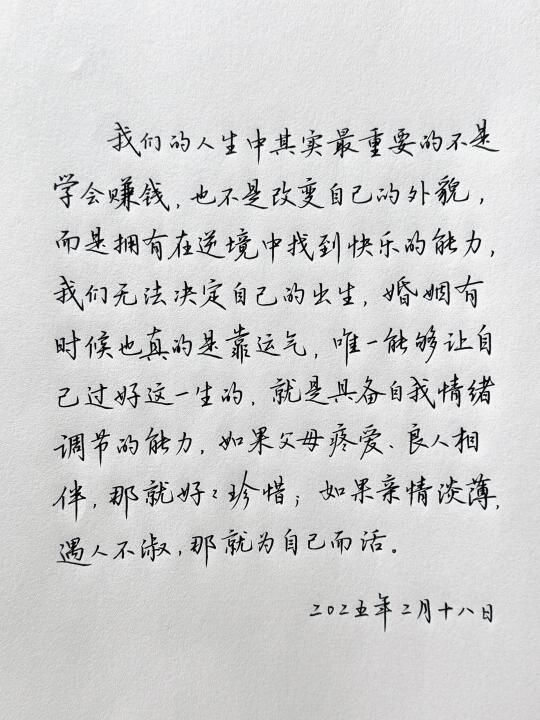 我们的人生中其实最重要的不是
学会赚钱，也不是改变自己的外貌，
而是拥有在逆境中找到快乐的能力，
我们无法决定自己的出生，婚姻有
时候也真的是靠运气，唯一能够让自
己过好这一生的，就是具备自我情绪
调节的能力，如果父母疼爱、良人相
伴，那就好々珍惜；如果亲情淡薄，
遇人不淑，那就为自己而活。
二〇二五年二月十八日